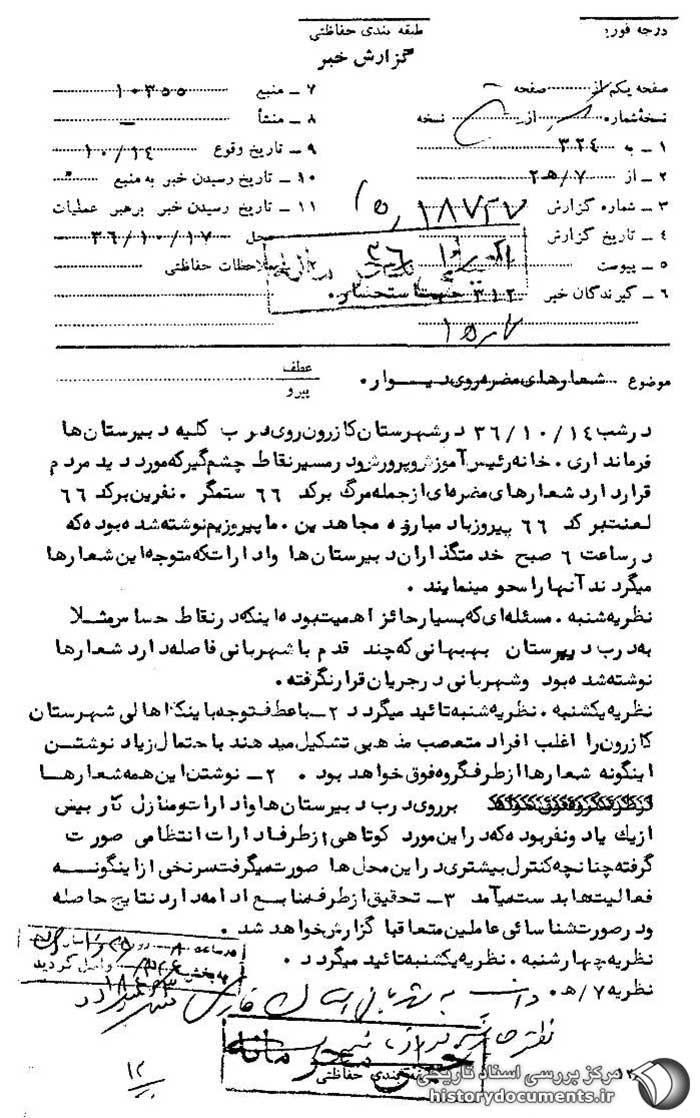 درجه فوریت
طبقه بندی حفاظتی
گزارش خبر
صفحه یکم از صفحه
نسخه شماره از نسخه
۱ ـ به ۳۲۴
۲ ـ از ۷/ه۲
۳ ـ شماره گزارش ۱۸۷۲۷
۴ ـ تاریخ گزارش
۵ ـ پیوست
۶ ـ گیرندگان خبر ۳۱۲
۷ ـ منبع ۱۰۳۵۵
۸ ـ منشأ ـ
۹ ـ تاریخ وقوع ۱۰/۱۴
۱۰ ـ تاریخ رسیدن خبر به منبع
۱۱ ـ تاریخ رسیدن خبر برهبر عملیات
محل ۳۶/۱۰/۱۷
ملاحظات حفاظتی
موضوع شعارهای مضره روی دیوار.
عطف
پیرو
در شب ۳۶/۱۰/۱۴ در شهرستان کازرون روی درب کلیه دبیرستان‌ها
فرمانداری. خانه رئیس آموزش و پرورش و در مسیر نقاط چشم‌گیر که مورد دید مردم
قرار دارد شعارهای مضره‌ای از جمله مرگ بر کد ۶۶ ستمگر. نفرین بر کد ۶۶
لعنت بر کد ۶۶ پیروز باد مبارزه مجاهدین. ما پیروزیم نوشته شده بود که
در ساعت ۶ صبح خدمتگذاران دبیرستان‌ها و ادارات که متوجه این شعارها
میگردند آنها را محو مینمایند.
نظریه شنبه. مسئله‌ای که بسیار حائز اهمیت بوده اینکه در نقاط حساس مثلا
به درب دبیرستان بهبهانی که چند قدم با شهربانی فاصله دارد شعارها
نوشته شده بود و شهربانی در جریان قرار نگرفته.
نظریه یکشنبه. نظریه شنبه تائید میگردد ۲ـ با عطف توجه باینکه اهالی شهرستان
کازرون را اغلب افراد متعصب مذهبی تشکیل میدهند با حتمال زیاد نوشتن
اینگونه شعارها از طرف گروه فوق خواهد بود. ۲ـ نوشتن این همه شعارها
بر روی درب دبیرستان‌ها و ادارات و منازل کار بیش
از یک یا دو نفر بوده که در این مورد کوتاهی از طرف ادارات انتظامی صورت
گرفته چنانچه کنترل بیشتری در این محل‌ها صورت میگرفت سرنخی از اینگونه
فعالیت‌ها بدست میآمد ۳ـ تحقیق از طرف منابع ادامه دارد نتایج حاصله
و در صورت شناسائی عاملین متعاقبا گزارش خواهد شد.
نظریه چهارشنبه. نظریه یکشنبه تائید میگردد.
نظریه ۷/ه.
به بخش واصل گردید
خیلی محرمانه
طبقه بندی حفاظتی
۱۲
مرکز بررسی اسناد تاریخی
historydocuments.ir